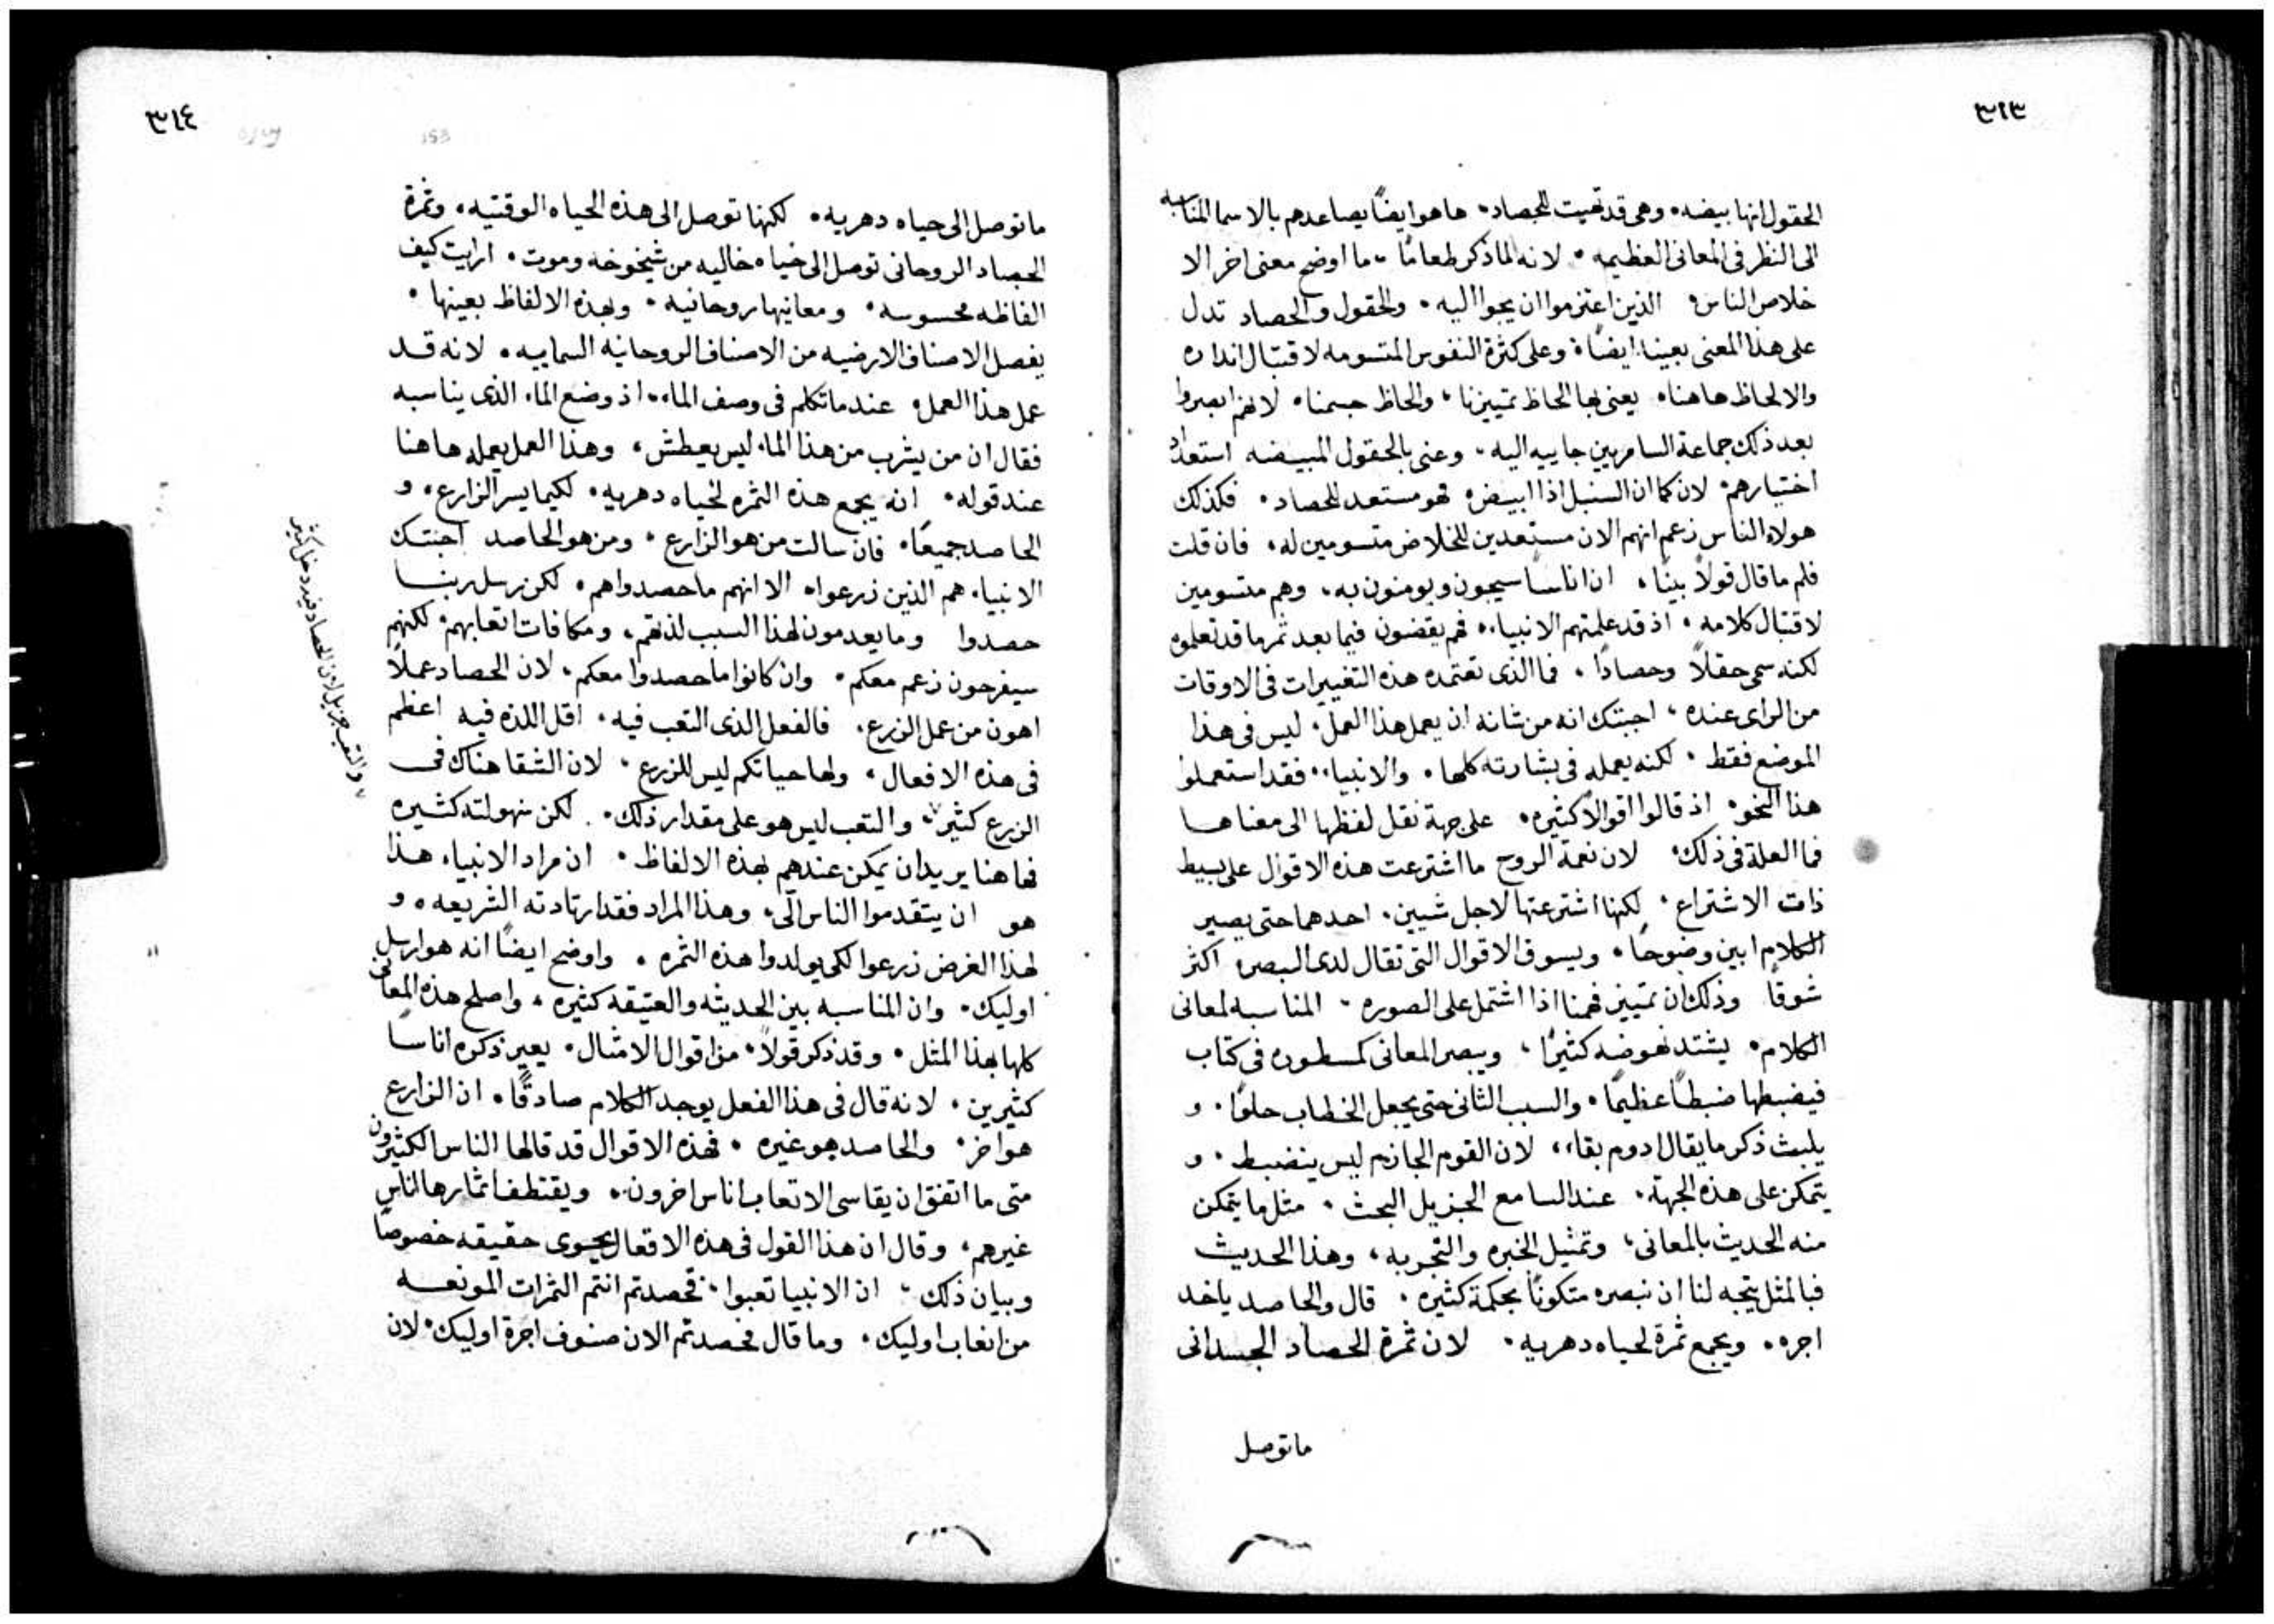 ٣١٣
الحقول انها بيضه. وهي قد تهيت للحصاد. هاهو ايضًا يصاعدهم بالاسما المناسبه
الى النظر في المعاني العظيمه. لانه لما ذكر طعامًا. ما اوضح معنى اخر الا
خلاص الناس. الذين اعتزموا ان يجوا اليه. والحقول والحصاد تدل
على هذا المعنى بعينه ايضًا. وعلى كثرة النفوس المتسومه لاقتبال انداره
والالحاظ هاهنا. يعني بها الحاظ تمييزنا، والحاظ جسمنا. لانهم ابصروا
بعد ذلك جماعة السامريين جاييه اليه. وعنى بالحقول المبيضه استعداد
اختيارهم. لان كما ان السنبل اذا ابيض. فهو مستعد للحصاد. فكذلك
هولاء الناس زعم انهم الان مستعدين للخلاص متسومين له. فان قلت
فلم ما قال قولاً بينًا. ان اناسًا سيجون ويومنون به. وهم متسومين
لاقتبال كلامه. اذ قد علمتهم الانبياء. فهم يقضون فيما بعد ثمر ما قد تعلموه
لكنه سمى حقلاً وحصادًا. فما الذي تعتمده هذه التغييرات في الاوقات
من الراي عنده، اجبتك انه من شانه ان يعمل هذا العمل. ليس في هذا
الموضع فقط. لكنه يعمله في بشارته كلها. والانبياء. فقد استعملوا
هذا النحو. اذ قالوا اقوالاً كثيره. على جهة نقل لفظها الى معناها
فما العلة في ذلك. لان نعمة الروح ما اشترعت هذه الاقوال على بسيط
ذات الاشتراع. لكنها اشترعتها لاجل شيين. احدهما حتى يصير
الكلام ابين وضوحًا. ويسوق الاقوال التي تقال لدى البصره اكثر
شوقًا وذلك ان تمييز فهمنا اذا اشتمل على الصوره. المناسبه لمعاني
الكلام. يشتد نهوضه كثيرًا، ويبصر المعاني كمسطوره في كتاب
فيضبطها ضبطًا عظيمًا. والسبب الثاني حتى يجعل الخطاب حلوًا. و
يلبث ذكر ما يقال ادوم بقاء، لان القوم الجازم ليس ينضبط. و
يتمكن على هذه الجهة. عند السامع الجزيل البحث. مثل ما يتمكن
منه الحديث بالمعاني، وتمثيل الخبره والتجربه، وهذا الحديث
فبالمثل يتجه لنا ان نبصره متكونًا بحكمة كثيره. قال والحاصد ياخد
اجره. ويجمع ثمرة لحياه دهريه. لان ثمرة الحصاد الجسداني
ماتوصل
٣١٤
153
ما توصل الى حياه دهريه. لكنها توصل الى هذه الحياه الوقتيه. وثمرة
الحصاد الروحاني توصل الى حياه خاليه من شيخوخه وموت. ارايت كيف
الفاظه محسوسه. ومعانيها روحانيه. وبهذه الالفاظ بعينها.
يفصل الاصناف الارضيه من الاصناف الروحانيه السماييه. لانه قد
عمل هذا العمل. عند ما تكلم في وصف الماء. اذ وضع الماء الذي يناسبه
فقال ان من يشرب من هذا الماء ليس يعطش، وهذا العمل يعمله هاهنا
عند قوله. انه يجمع هذه الثمره لحياه دهريه. لكيما يسر الزارع. و
الحاصد جميعًا. فان سالت من هو الزارع. ومن هو الحاصد اجبتك
الانبياء هم الذين زرعوا. الا انهم ما حصدوا هم. لكن رسل ربنا
حصدوا وما يعدمون لهذا السبب لذتهم، ومكافات اتعابهم. لكنهم
سيفرحون زعم معكم. وان كانوا ما حصدوا معكم. لان الحصاد عملاً
اهون من عمل الزرع. فالفعل الذي التعب فيه. اقل اللذه فيه اعظم
في هذه الافعال. ولها حياتكم ليس للزرع. لان الشقا هناك في
الزرع كثير. والتعب ليس هو على مقدار ذلك. لكن سهولته كثيره
فهاهنا يريد ان يمكن عندهم بهذه الالفاظ. ان مراد الانبياء هذا
هو ان يتقدموا الناس اليّ. وهذا المراد فقد ارتادته الشريعه. و
لهذا الغرض زرعوا لكي يولدوا هذه الثمره. واوضح ايضًا انه هو ارسل
اوليك. وان المناسبه بين الحديثه والعتيقه كثيره، واصلح هذه المعاني
كلها بهذا المثل. وقد ذكر قولاً. من اقوال الامثال. يعير ذكره اناسًا
كثيرين. لانه قال في هذا الفعل يوجد الكلام صادقًا. ان الزارع
هو اخر. والحاصد هو غيره. فهذه الاقوال قد قالها الناس الكثيرون
متى ما اتفق ان يقاسي الاتعاب اناس اخرون. ويقتطف اثمارها الناس
غيرهم، وقال ان هذا القول في هذه الافعال يحوي حقيقه خصوصًا
وبيان ذلك. ان الانبيا تعبوا. فحصدتم انتم الثمرات المونعه
من اتعاب اوليك. وما قال فحصدتم الان صنوف اجرة اوليك. لان
والتعب جزيل لان الحصاد فيرد دخل كثير